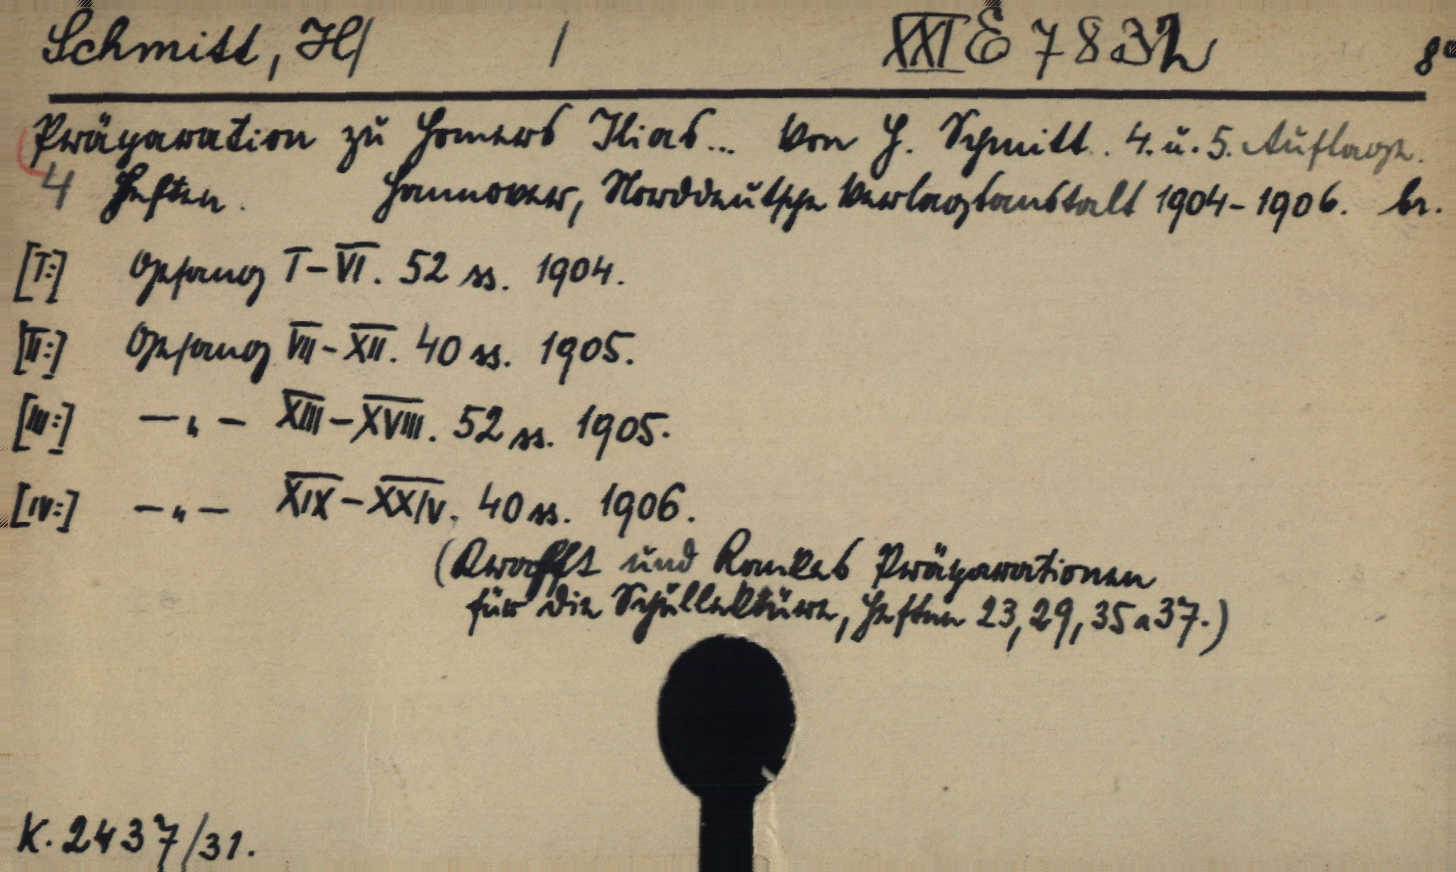 Schmitt, H/ / XXI E 7832 8°
Präparation zu Homers Ilias... Von H. Schmitt. 4. u. 5. Auflage.
4 Heften. Hannover, Norddeutsche Verlagsanstalt 1904-1906. br.
[I:] Gesang I-VI. 52 ss. 1904.
[II:] Gesang VII-XII. 40 ss. 1905.
[III:] —„— XIII-XVIII. 52 ss. 1905.
[IV:] —„— XIX-XXIV. 40 ss. 1906.
(Krafft und Rankes Präparationen
für die Schullektüre, Heften 23, 29, 35 a 37.)
K. 2437/31.